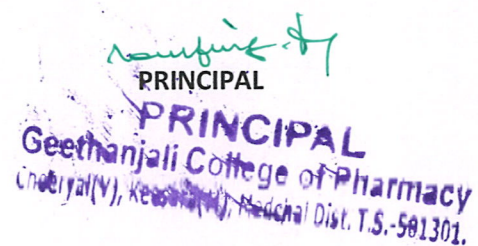 PRINCIPAL
PRINCIPAL
Geethanjali College of Pharmacy
Cheeryal(V), Keesara(M), Medchal Dist. T.S.-501301.